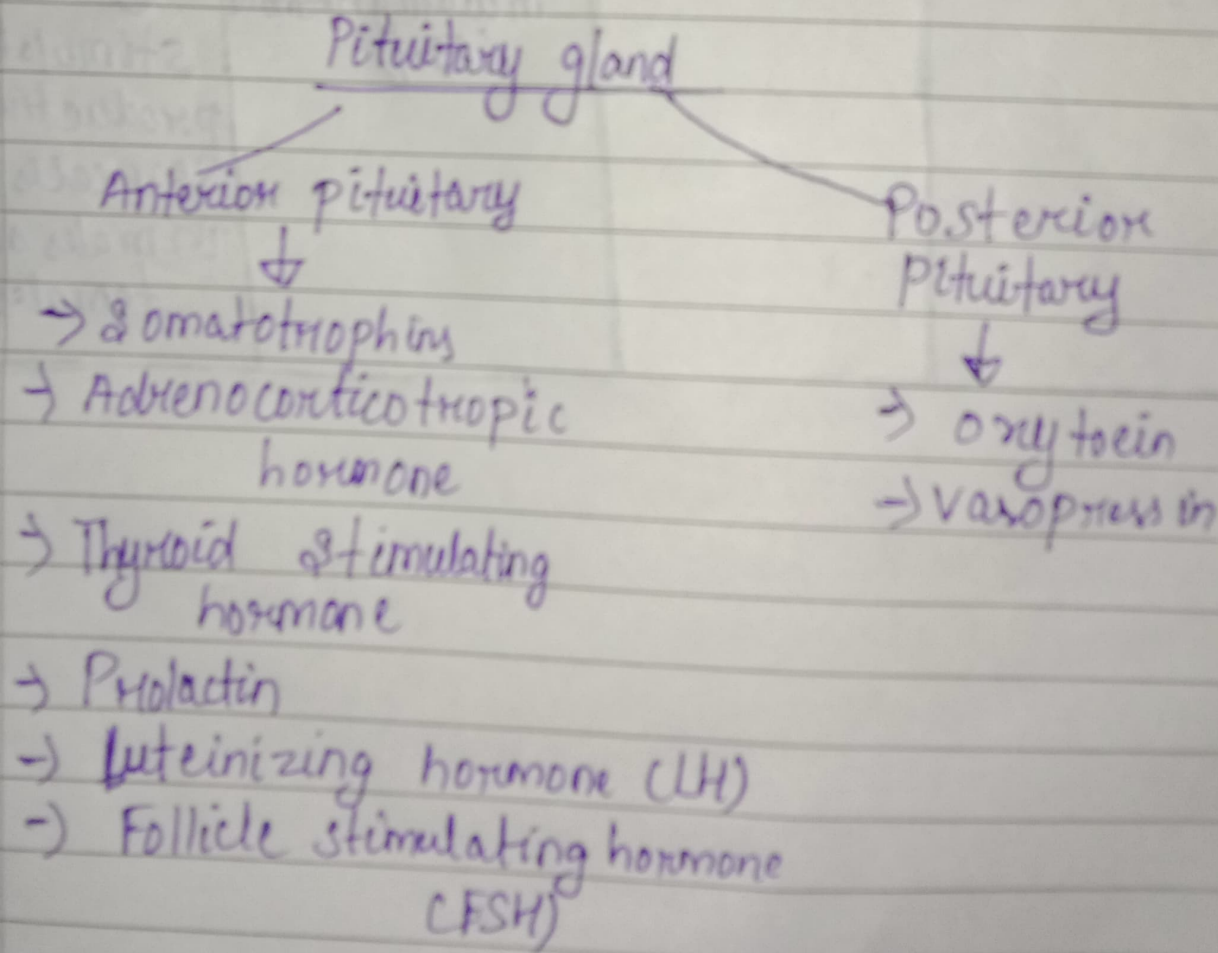 Pituitary gland
Anterior pituitary
Posterior
Pituitary
→ Somatotrophins
→ Adrenocorticotropic
hormone
→ Thyroid Stimulating
hormone
→ Prolactin
→ Luteinizing hormone (LH)
→ Follicle stimulating hormone
(FSH)
→ oxytocin
→ Vasopressin